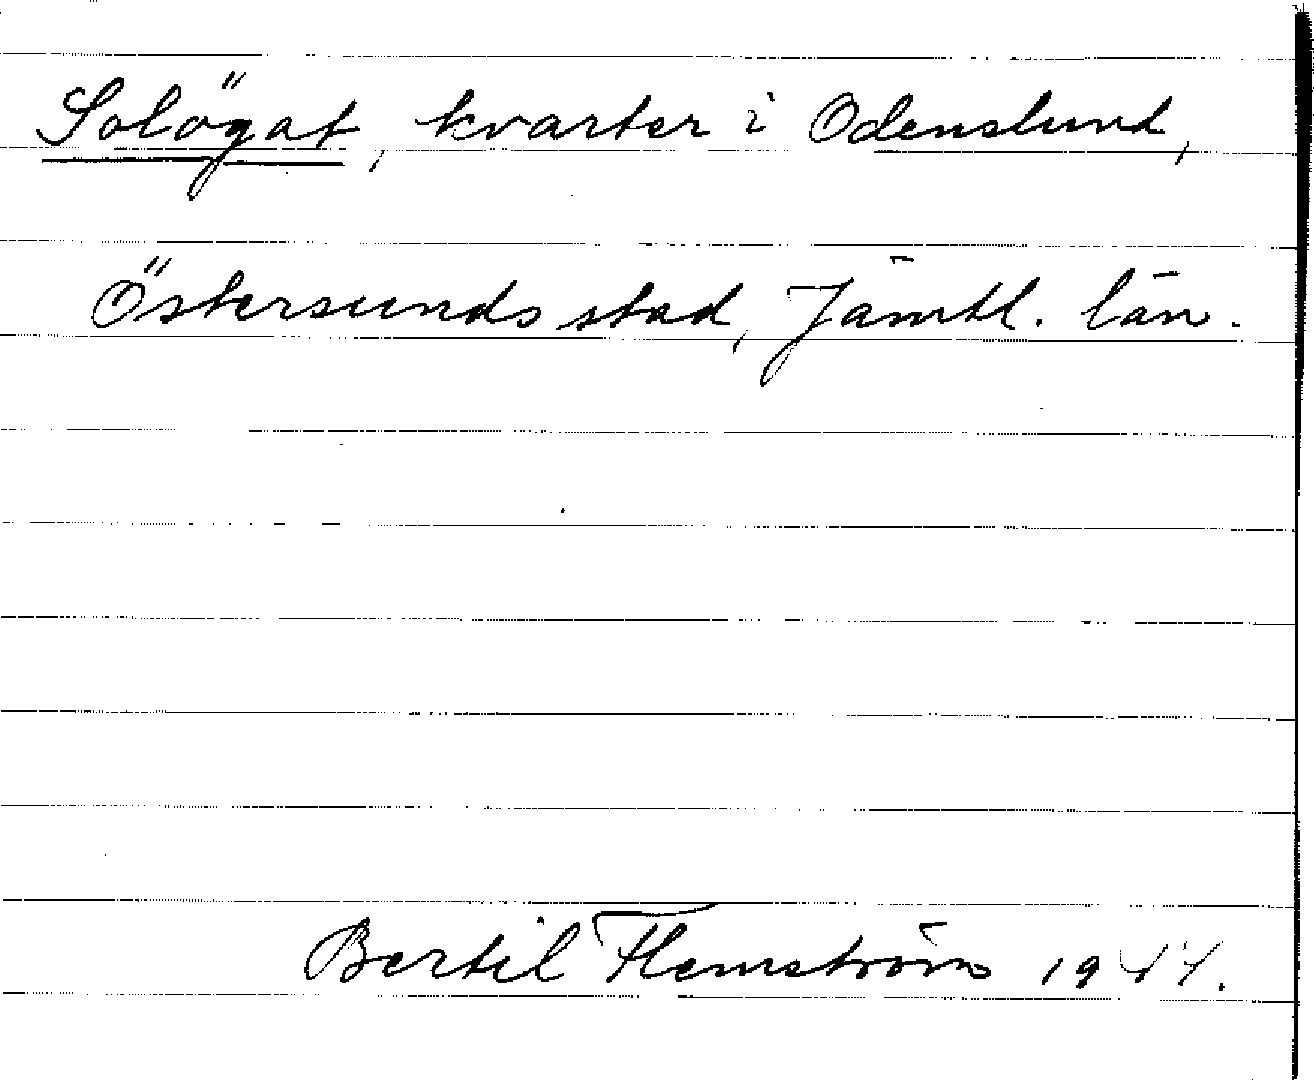 Solögat, kvarter i Odenslund,
Östersunds stad, Jämtl. län.
Bertil Flemström 1944.